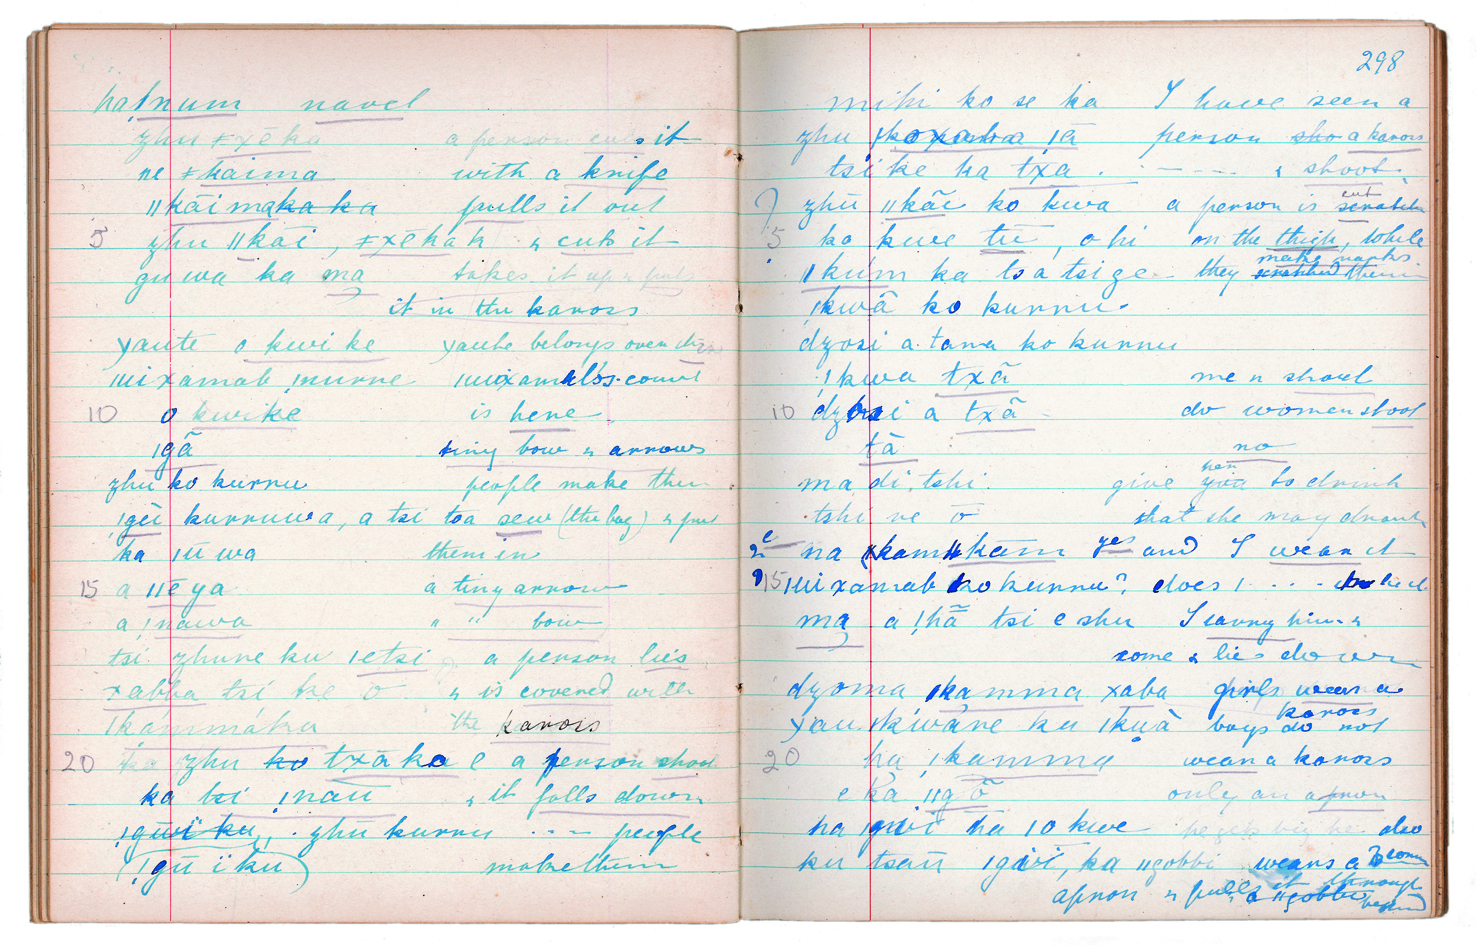 ha!num navel
zhu ǂxēka a person cuts it
ne ǂkaima with a knife
ǁkāi maka ka pulls it out
5 zhu ǁkāi, ǂxēkak & cuts it
guwa ka ma takes it up puts
it in the kaross
yaute o kwi ke yaute belongs over
ǀuixamab ǃnurne ǀuixamab's count
10 o kwike is here
ǀgā tiny bow & arrows
zhu ko kurru people make them
ǃgū kurruwa, a tsi toa sew (the bag) & put
ka ǀū wa them in
15 a ǁē ya a tiny arrow
a ǃnawa " " bow
tsi zhune ku ǀetsi a person lies
xabba tsi ke o & is covered with
ǀkámmáha the kaross
20 ka zhu ko txā ko e a person shoot
ka tsi ǃnau & it falls down
ǃgūwi ku, zhū kurru ---- people
(ǃgū ï ku) make them
298
mihi ko se ka I have seen a
zhu ǀkoxaba ǀā person sho a kaross
tsi ke ha txa . ---- & shoot.
? zhū ǁkāi ko kwa a person is scratch cut
5 ko kwe tū, o hi on the thigh, while
ǀkúm ka ts a tsi ge they scratched them make marks
ǃkwā ko kurru
dzosi a tana ko kurru
ǃkwa txā men shoot
10 dzosi a txā do women shoot
tā no
ma di tshi give you her to drink
tshi ne o that she may drink
na ǁkam ǁkam yes and I wear it
15 ǀuixamab ko kurru? does ǀ ....
ma a ǃhā tsi e shu I carry him &
come & lie down
dzoma ǀkamma xaba girls wear a
kaross
yau ǀkiwáne ku ǀkuà boys do not
20 ha ǀkamma wear a kaross
e ka ǁgō only an apron
ha ǀgivi ha ǀo kwe he gets big he also
ku tsau ǀgivi, ka ǁgobbi wears a
apron & pulls it through
a ǁgobbi behind